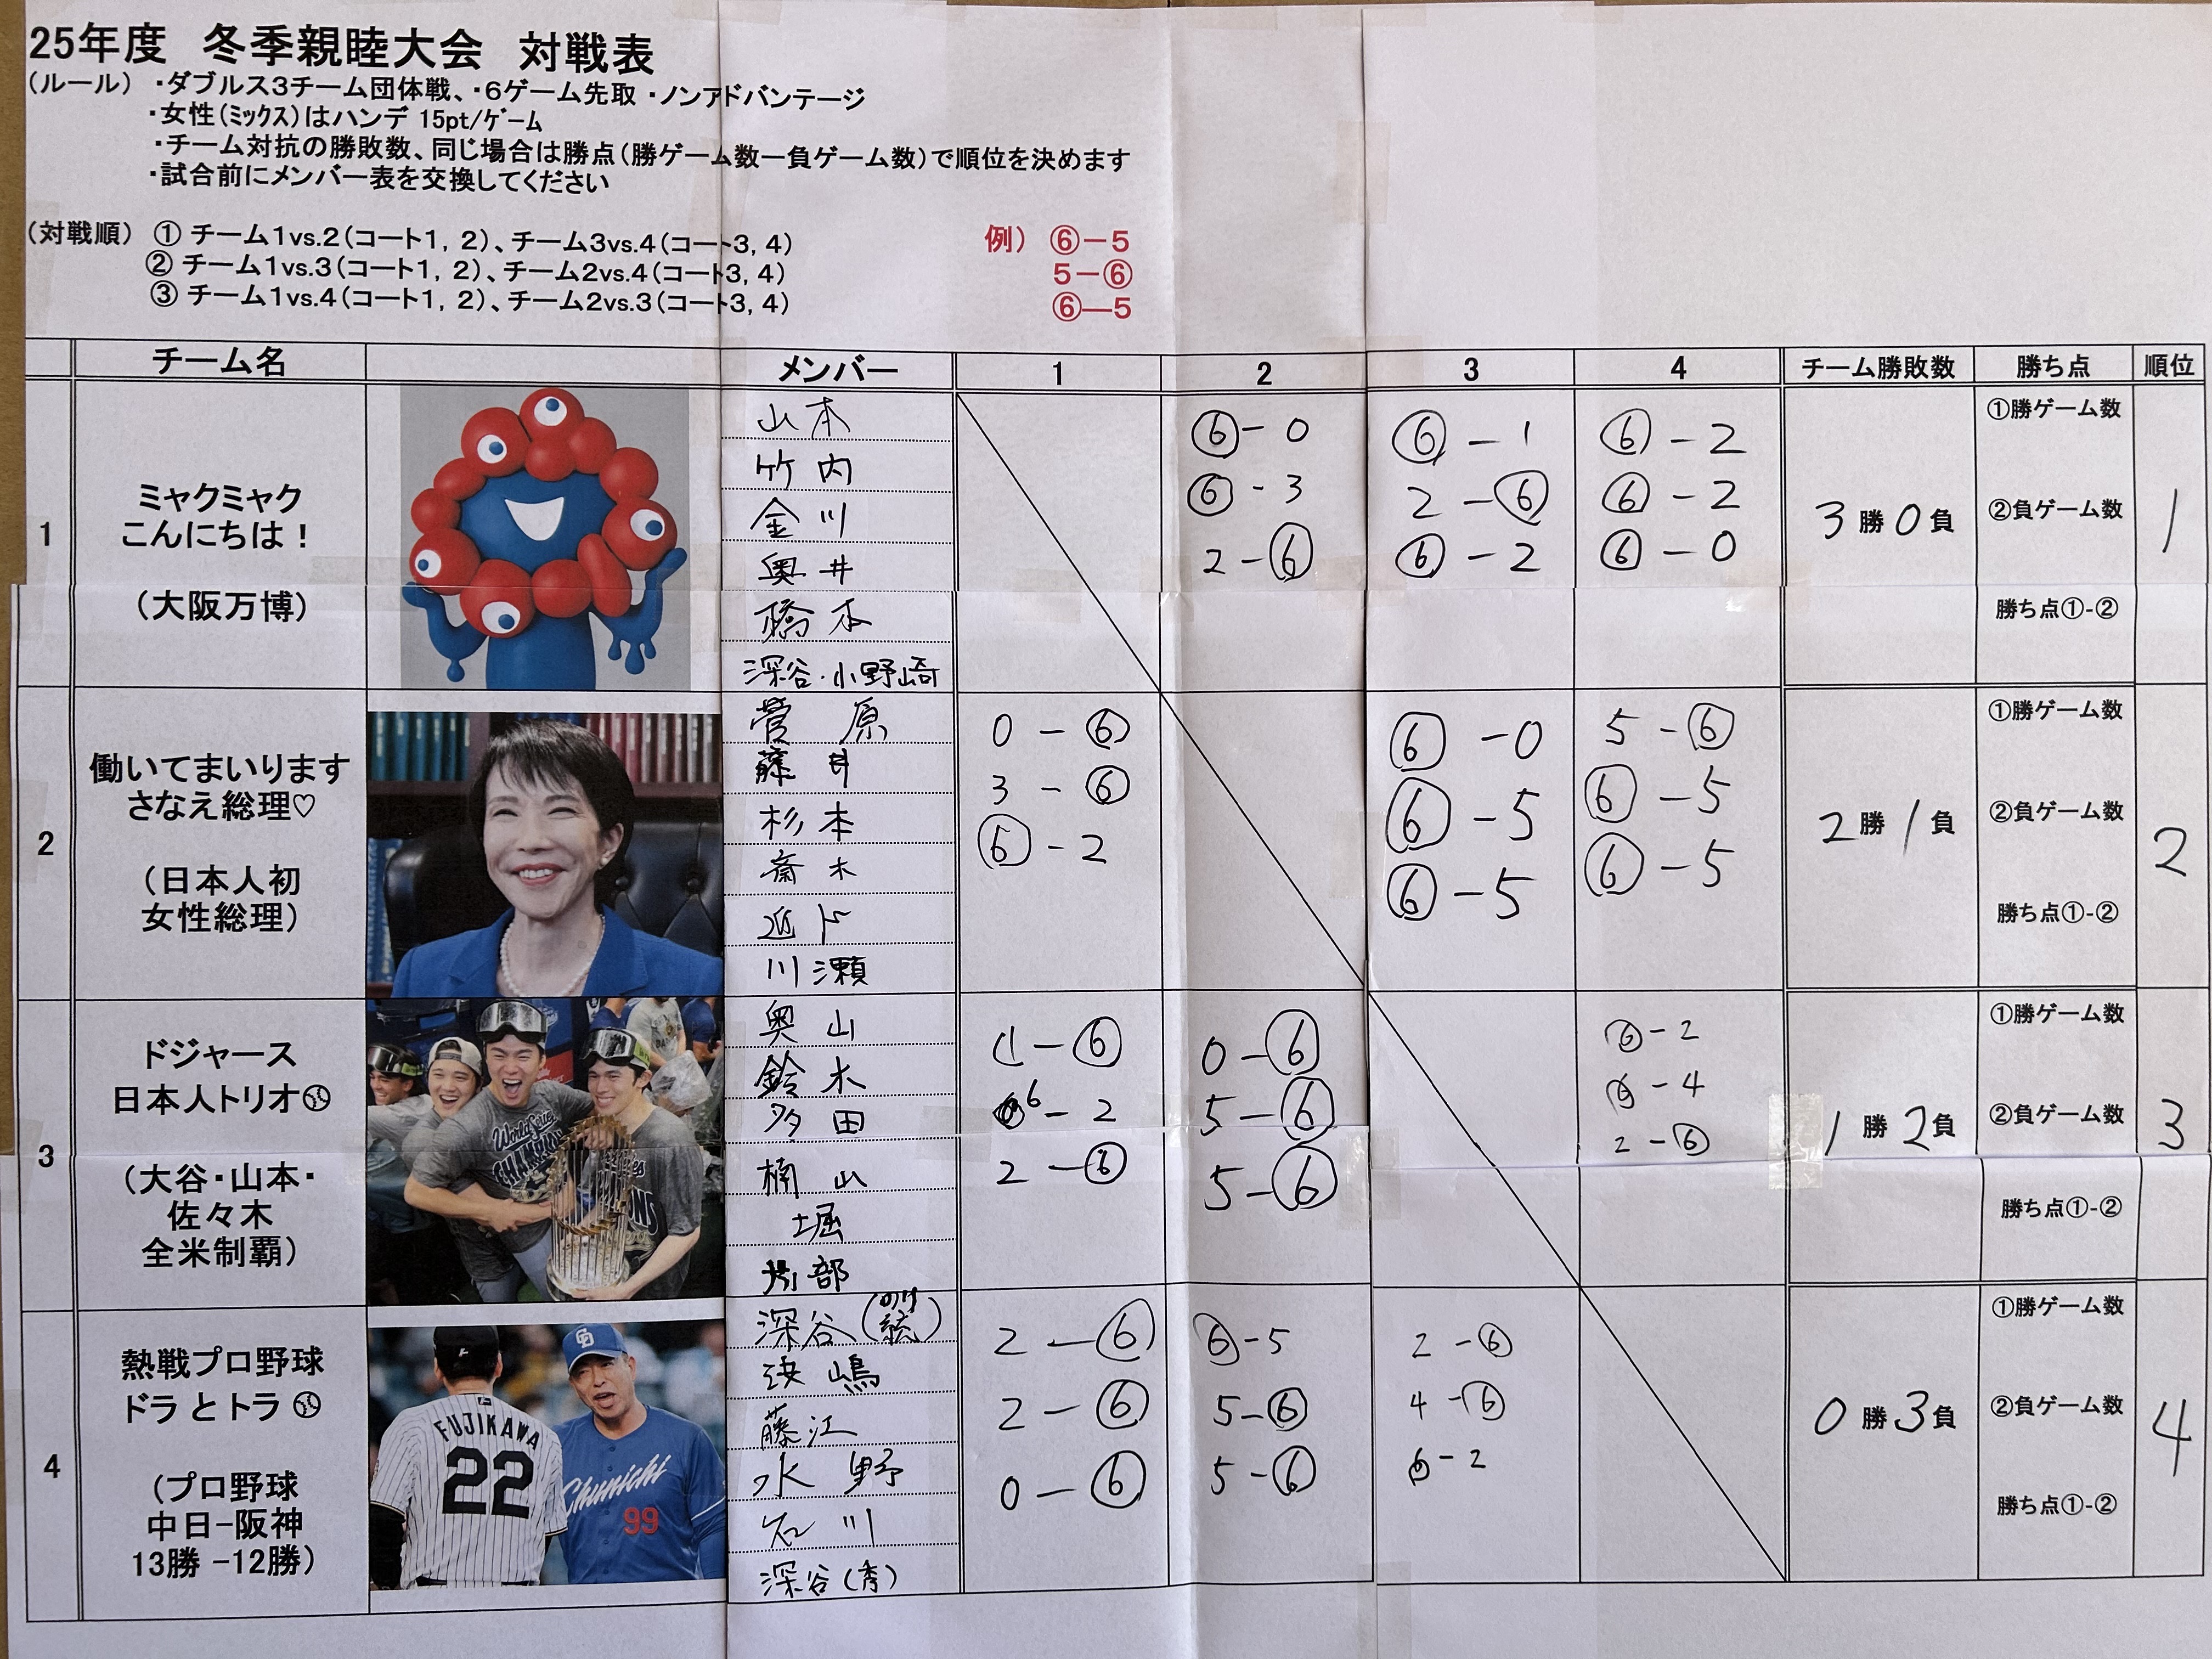 25年度　冬季親睦大会　対戦表
（ルール）　・ダブルス３チーム団体戦、・６ゲーム先取　・ノンアドバンテージ
・女性（ミックス）はハンデ 15pt/ゲーム
・チーム対抗の勝敗数、同じ場合は勝点（勝ゲーム数ー負ゲーム数）で順位を決めます
・試合前にメンバー表を交換してください
（対戦順）　① チーム１vs.２（コート１，２）、チーム３vs.４（コート３，４）
② チーム１vs.３（コート１，２）、チーム２vs.４（コート３，４）
③ チーム１vs.４（コート１，２）、チーム２vs.３（コート３，４）
例）　⑥－５
５－⑥
⑥―５
チーム名　メンバー　1　2　3　4　チーム勝敗数　勝ち点　順位
1
ミャクミャク
こんにちは！
（大阪万博）
山本
竹内
金川
奥井
橋本
深谷・小野崎
⑥－0
⑥－3
2－⑥
⑥－1
2－⑥
⑥－2
⑥－2
⑥－2
⑥－0
3勝0負
①勝ゲーム数
②負ゲーム数
勝ち点①-②
1
2
働いてまいります
さなえ総理♡
（日本人初
女性総理）
菅原
藤井
杉本
斎木
近ド
川瀬
0－⑥
3－⑥
⑥－2
⑥－0
⑥－5
⑥－5
5－⑥
⑥－5
⑥－5
2勝1負
①勝ゲーム数
②負ゲーム数
勝ち点①-②
2
3
ドジャース
日本人トリオ⚾
（大谷・山本・
佐々木
全米制覇）
World Series
CHAMPIONS
奥山
鈴木
多田
楠山
堀
部
1－⑥
6－2
2－⑥
0－⑥
5－⑥
5－⑥
⑥－2
⑥－4
2－⑥
1勝2負
①勝ゲーム数
②負ゲーム数
勝ち点①-②
3
4
熱戦プロ野球
ドラ と トラ ⚾
（プロ野球
中日−阪神
13勝 −12勝）
FUJIKAWA
22
Chunichi
99
深谷（紘）
浜嶋
藤江
水野
石川
深谷（秀）
2－⑥
2－⑥
0－⑥
⑥－5
5－⑥
5－⑥
2－⑥
4－⑥
⑥－2
0勝3負
①勝ゲーム数
②負ゲーム数
勝ち点①-②
4